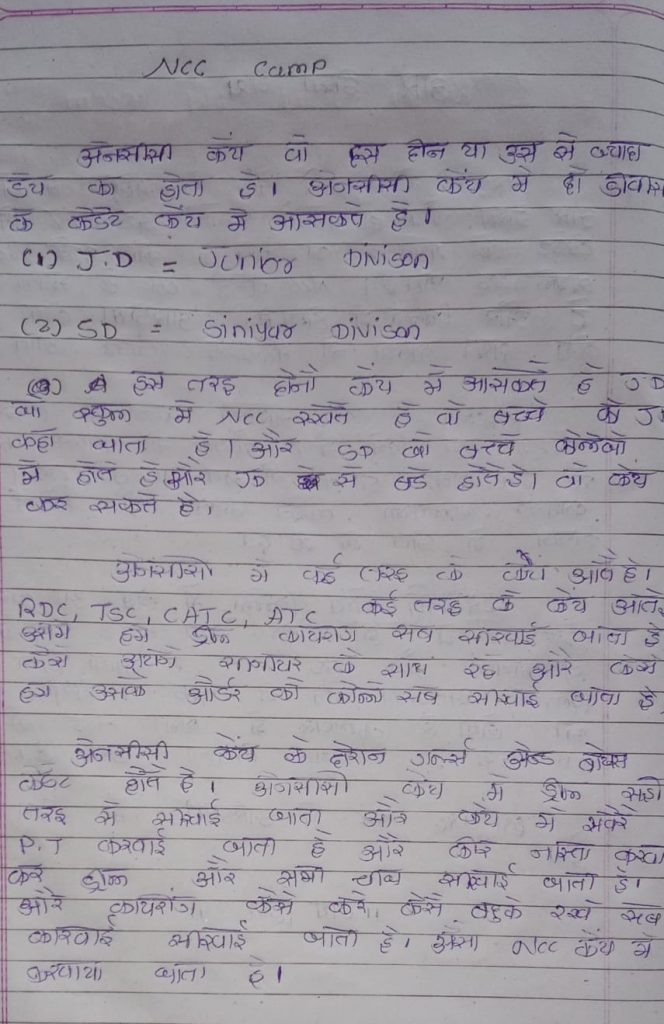 NCC Camp
अेनसीसी केंप वो दस दीन या उस से ज्यादा
डेय का होता है। अेनसीसी केंप मे दो डीवीस
के कडेट केंप मे आसकते है।
(1) J.D = Junior Divison
(2) SD = Siniyar Divison
इस तरह दोनो केंप में आसकते है JD
जो स्कुल में NCC रखते है वो बच्चे को J
कहा जाता है। और SD जो बच्चे कोलेजो
में होते है और JD से बडे होते है। वो केंप
कर सकते है।
अेनसीसी मे कई तरह के केंप आते है।
RDC, TSC, CATC, ATC कई तरह के केंप आते
हम ड्रील फायरींग सब सीखाई जाता है
केसे अपने सीनीयर के साथ रहे और केसे
हम उसके ओर्डर को फोलो सब सीखाई जाता है
अेनसीसी केंप के दोरान गर्ल्स अेन्ड बोयस
कडेट होते है। अेनसीसी केंप में ड्रील सही
तरह से सीखाई जाता और केंप में सवेरे
P.T करवाई जाता है और फीर नास्ता करवा
कर ड्रील और सभी चीज सीखाई जाता है।
और फायरींग केसे करे, केसे बंदुके रखे सब
कारवाई सीखाई जाता है। अेसा NCC केंप में
करवाया जाता है।